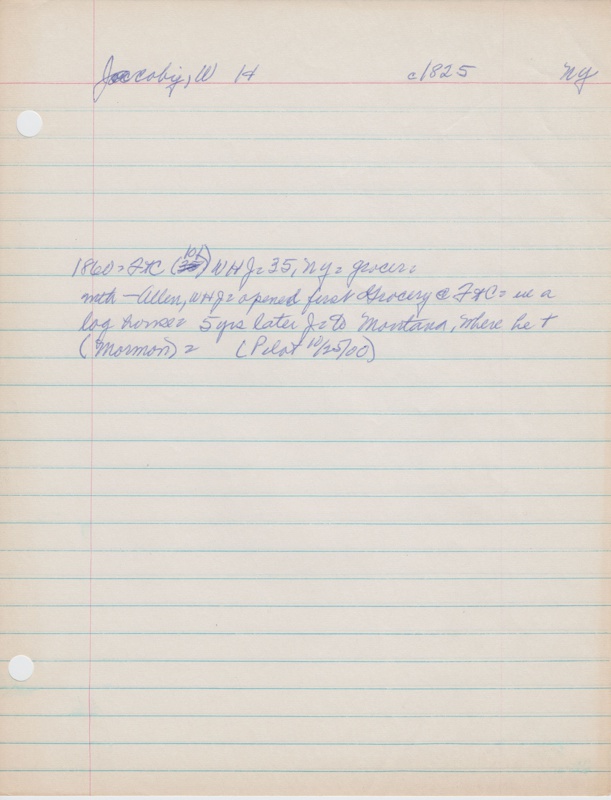 Jacoby, W H c1825 NY
1860 = F+C (101) W H J = 35, NY = grocer =
with - Allen, W H J = opened first Grocery @ F+C = in a
log house = 5 yrs later J = to Montana, where he +
(Mormon) = (Pilot 10/25/00)